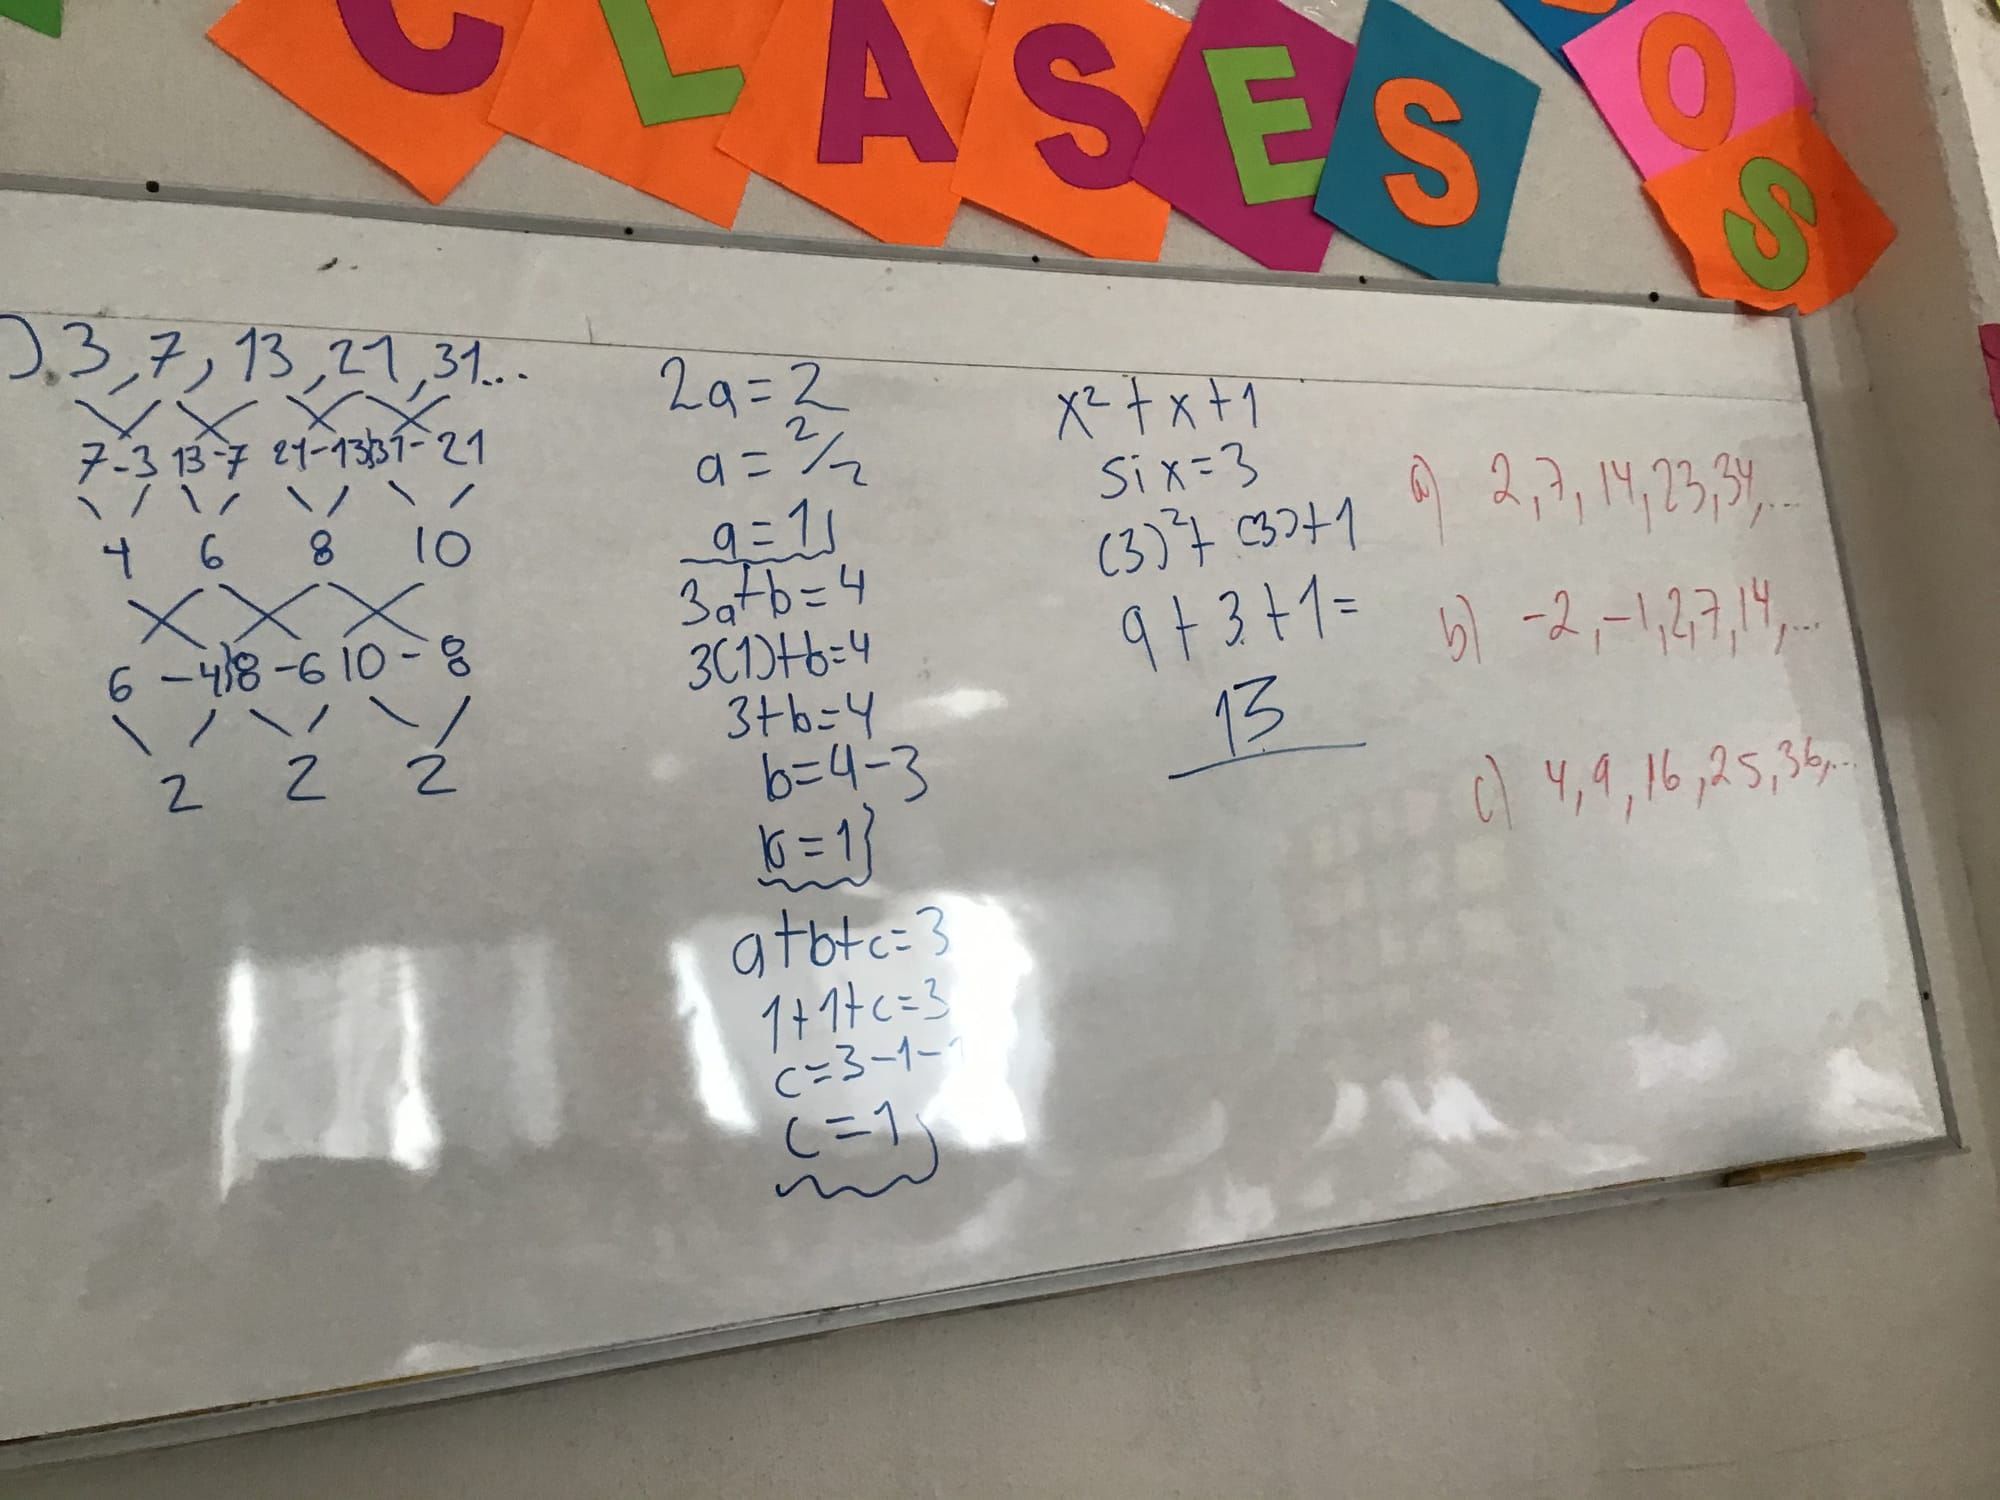 CLASES
OS
). 3, 7, 13, 21, 31...
7-3 13-7 21-13 31-21
4 6 8 10
6-4 8-6 10-8
2 2 2
2a=2
a=2/2
a=1
3a+b=4
3(1)+b=4
3+b=4
b=4-3
b=1
a+b+c=3
1+1+c=3
c=3-1-1
c=1
x²+x+1
si x=3
(3)²+(3)+1
9+3+1=
13
a) 2,7,14,23,34,...
b) -2,-1,2,7,14,...
c) 4,9,16,25,36,...